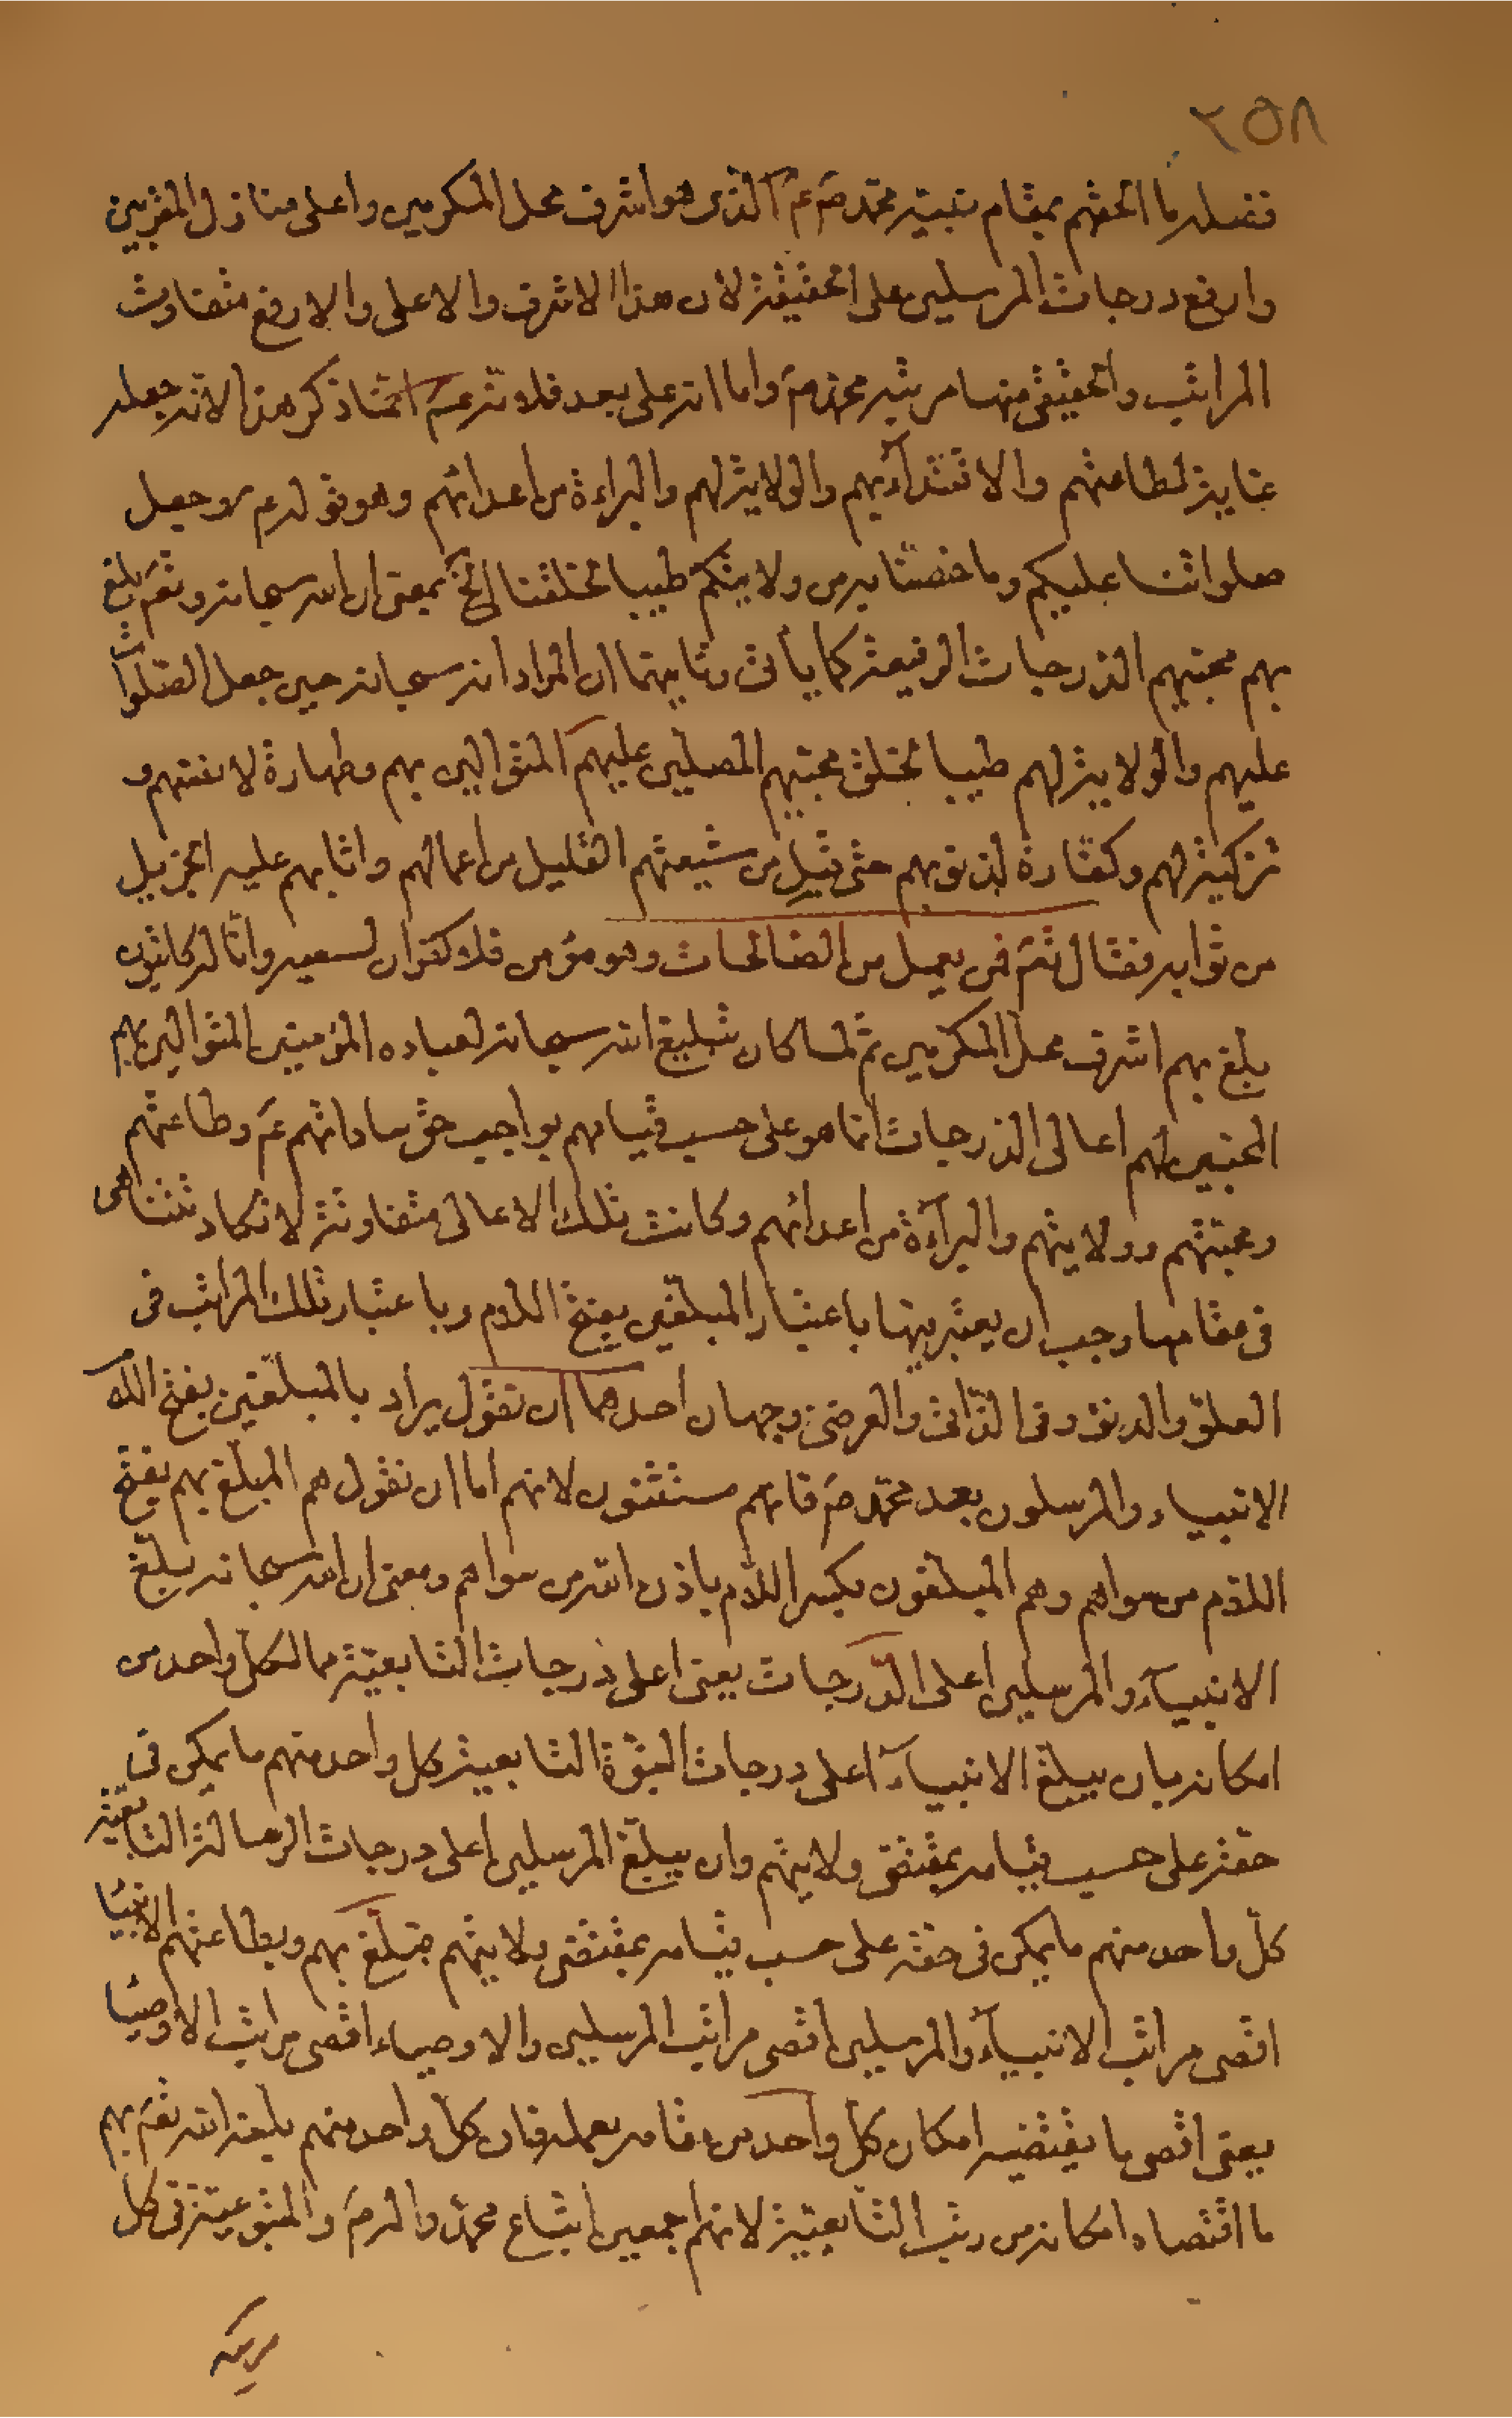 ٢٥٨
فضله ما الحقهم بمقام نبيه محمد ص ع الذى هو اشرف محل المكرمين واعلى منازل المقربين
وارفع درجات المرسلين على الحقيقة لان هذا الاشرف والاعلى والارفع متفاوت
المراتب والحقيقى منها مرتبة محمد ص واما انه على بعد فلانه ع انما ذكر هذا لانه جعله
غاية لطاعتهم والاقتداء بهم والولاية لهم والبراءة من اعدائهم وهو قوله ع وجعل
صلواتنا عليكم وما خصنا به من ولايتكم طيبا لخلقنا الخ بمعنى ان الله سبحانه وتعم بلغ
بهم محبيهم الدرجات الرفيعة كما يأتى وثانيهما ان المراد انه سبحانه حين جعل الصلوات
عليهم والولاية لهم طيبا لخلق محبيهم المصلين عليهم المتوالين بهم وطهارة لانفسهم و
تزكية لهم وكفارة لذنوبهم حتى قبل من شيعتهم القليل من اعمالهم واثابهم عليه الجزيل
من ثوابه فقال تعم فمن يعمل من الصالحات وهو مؤمن فلا كفران لسعيه وانا له كاتبون
بلغ بهم اشرف محل المكرمين ثم لما كان تبليغ الله سبحانه لعباده المؤمنين المتوالين بهم
المحبين لهم اعالى الدرجات انما هو على حسب قيامهم بواجب حق ساداتهم ع وطاعتهم
ومحبتهم وولايتهم والبرآءة من اعدائهم وكانت تلك الاعالى متفاوتة لا تكاد تتناهى
فى مقامها وجب ان يعتبر فيها باعتبار المبلغين بفتح اللام وباعتبار تلك المراتب فى
العلو والدنو وفى الذاتى والعرضى وجهان احدهما ان نقول يراد بالمبلغين بفتح اللام
الانبياء والمرسلون بعد محمد ص فانهم مستثنون لانهم اما ان نقول هم المبلغ بهم بفتح
اللام من سواهم وهم المبلغون بكسر اللام باذن الله من سواهم ومعنى ان الله سبحانه يبلغ
الانبيآء والمرسلين اعلى الدرجات يعنى اعلى درجات التابعية مما لكل واحد من
امكانه بان يبلغ الانبيآء اعلى درجات النبوة التابعية كل واحد منهم ما يمكن فى
حقه على حسب قيامه بمقتضى ولايتهم وان يبلغ المرسلين اعلى درجات الرسالة التابعية
كل واحد منهم ما يمكن فى حقه على حسب قيامه بمقتضى ولايتهم فبلغ بهم وبطاعتهم الانبيا
اقصى مراتب الانبيآء والمرسلين اقصى مراتب المرسلين والاوصياء اقصى مراتب الاوصيا
يعنى اقصى ما يقتضيه امكان كل واحد من مقامه بعمله فان كل واحد منهم بلغه الله تعم بهم
ما اقتضاه امكانه من رتب التابعية لانهم اجمعين اتباع محمد وآله ص والمتبوعية فى كل